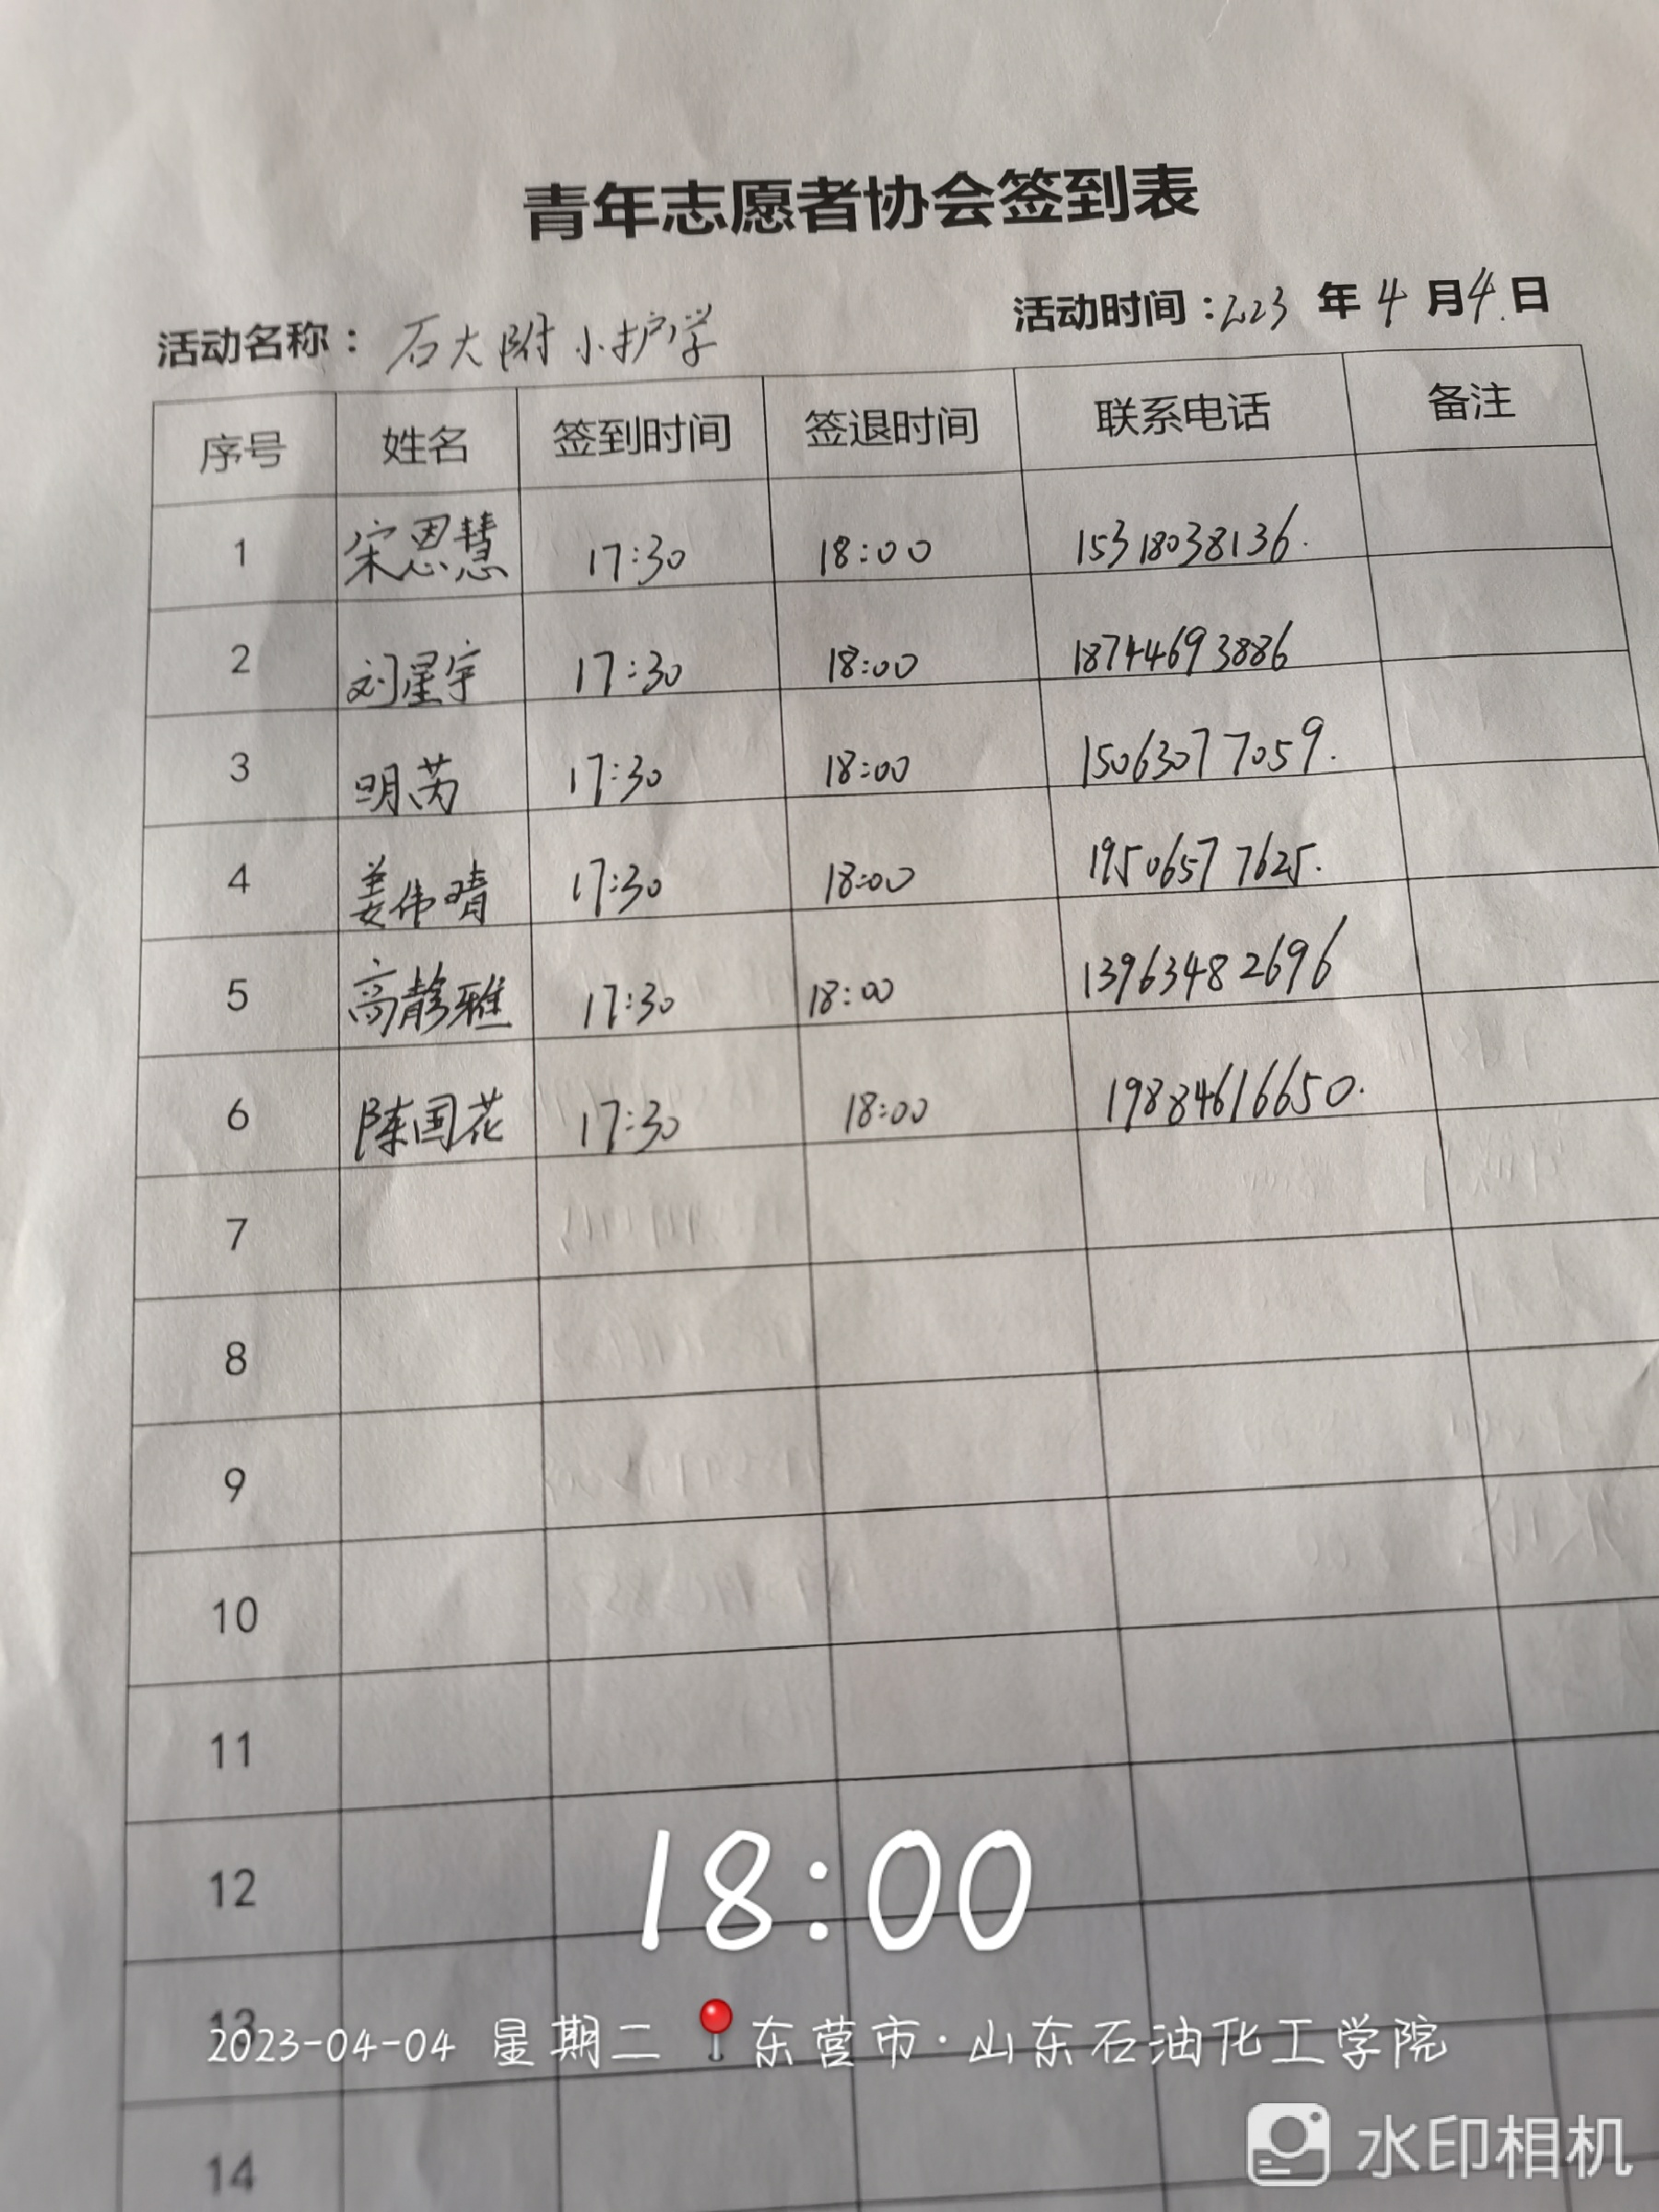 青年志愿者协会签到表
活动名称：石大附小护学 活动时间：2023 年 4 月 4 日
序号 姓名 签到时间 签退时间 联系电话 备注
1 宋恩慧 17:30 18:00 15318038136.
2 刘星宇 17:30 18:00 18744693886
3 明芮 17:30 18:00 15063077059.
4 姜伟晴 17:30 18:00 19506577625.
5 高静雅 17:30 18:00 13963482696
6 陈国花 17:30 18:00 19884616650.
7
8
9
10
11
12
18:00
13
2023-04-04 星期二 东营市·山东石油化工学院
14
水印相机